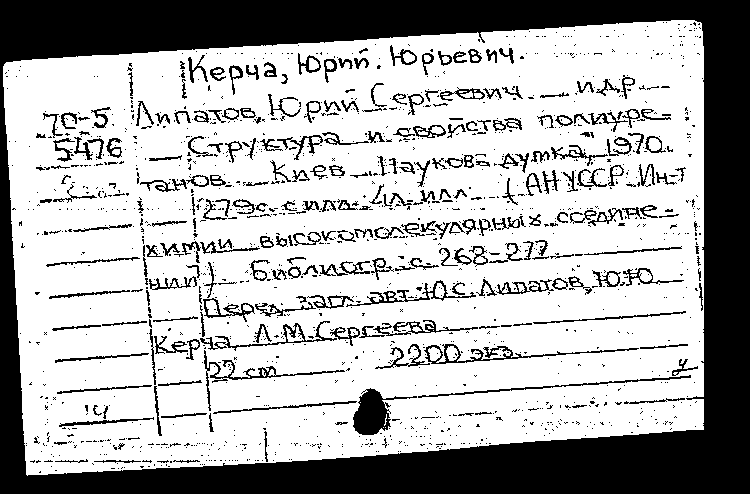 Керча, Юрий Юрьевич.
70-5 Липатов, Юрий Сергеевич и др.
5476 Структура и свойства полиуре-
танов. Киев "Наукова думка", 1970.
279 с. с илл. 4 л. илл. (АН УССР. Ин-т
химии высокомолекулярных соедине-
ний). Библиогр.: с. 268-277
Перед загл. авт.: Ю.С. Липатов, Ю.Ю.
Керча, Л.М. Сергеева.
22 cm 2200 экз.
У
14